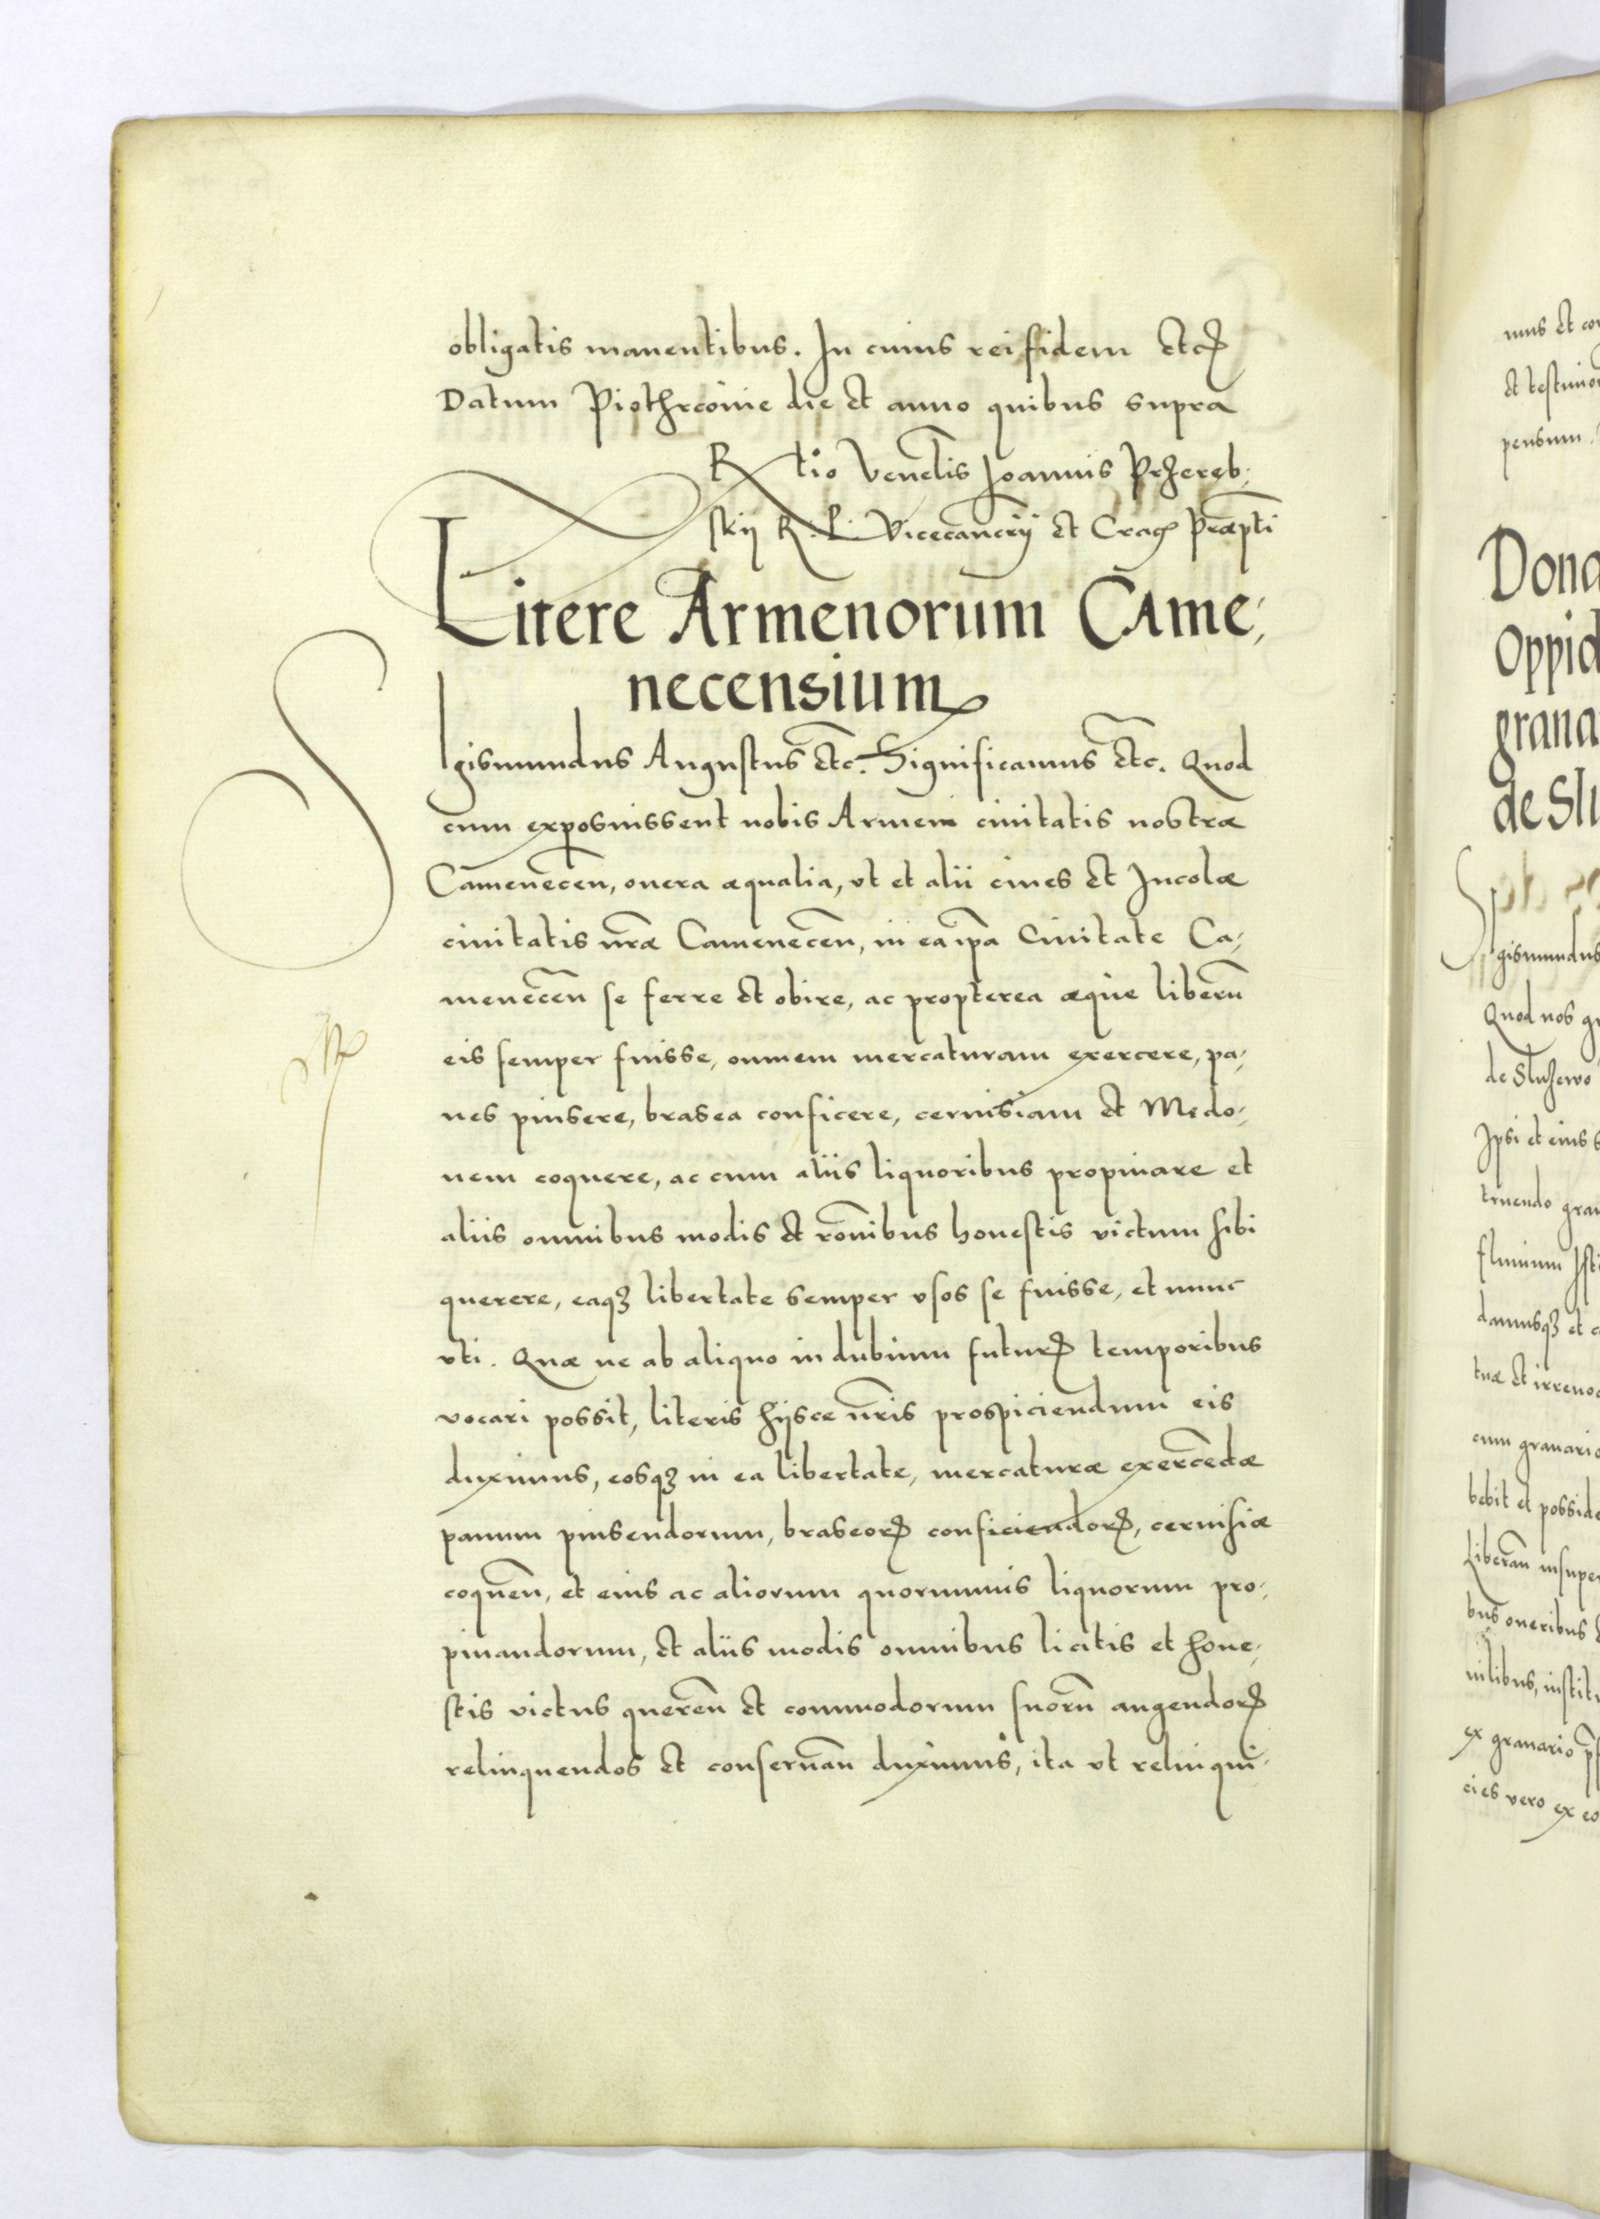 obligatis manentibus. In cuius rei fidem etc̃
Datum Piothrcouie die et anno quibus supra
Rtio Venelis Joannis Przeręb-
skij R. P. Vicecancrij et Crac Præpti
Litere Armenorum Came-
necensium
Sigismundus Augustus etc. Significamus etc. Quod
cum exposuissent nobis Armeni ciuitatis nostræ
Camenecen̄, onera æqualia, vt et alii ciues et Incolæ
ciuitatis nr̄æ Camenecen̄, in ea ip̄a Ciuitate Ca-
menecen̄ se ferre et obire, ac propterea æque liberū
eis semper fuisse, omnem mercaturam exercere, pa-
nes pinsere, brasea conficere, ceruisiam et Medo-
nem coquere, ac cum aliis liquoribus propinare et
aliis omnibus modis et rōnibus honestis victum sibi
querere, eaqꝫ libertate semper vsos se fuisse, et nunc
vti. Quæ ne ab aliquo in dubium futurꝝ temporibus
vocari possit, literis hijsce nr̄is prospiciendum eis
duximus, eosqꝫ in ea libertate, mercaturæ exercēdæ
panum pinsendorum, braseorꝝ conficiendorꝝ, ceruisiæ
coquen̄, et eius ac aliorum quorumuis liquorum pro-
pinandorum, et aliis modis omnibus licitis et hone-
stis victus queren̄ et commodorum suorū augendorꝝ
relinquendos et conseruan̄ duximus, ita vt relinqui-
mus et con
et testimon
pensum.
Dona
Oppid
grana
de Slu
Sigismundus
Quod nos gr
de Sluzewo
Ipsi et eius s
truendo gran
fluuium Isti
damusqꝫ et c
tuæ et irreuoc
cum granario
bebit et posside
Liberan̄ insuper
bus oneribus
uilibus, institu
ex granario
cies vero ex eo